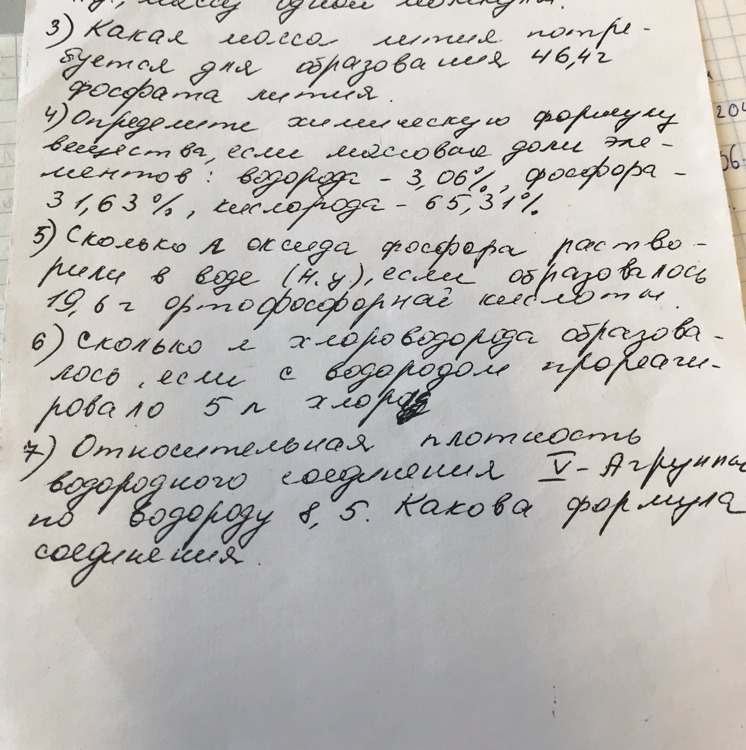 массу одной молекулы.
3) Какая масса лития потре-
буется для образования 46,4г
фосфата лития.
4) Определите химическую формулу
вещества, если массовая доли эле-
ментов: водорода - 3,06%, фосфора -
31,63%, кислорода - 65,31%
5) Сколько л оксида фосфора раство-
рили в воде (н.у), если образовалось
19,6 г ортофосфорной кислоты.
6) Сколько л хлороводорода образова-
лось, если с водородом прореаги-
ровало 5 л хлора
7) Относительная плотность
водородного соединения V-А группы
по водороду 8,5. Какова формула
соединения.
204